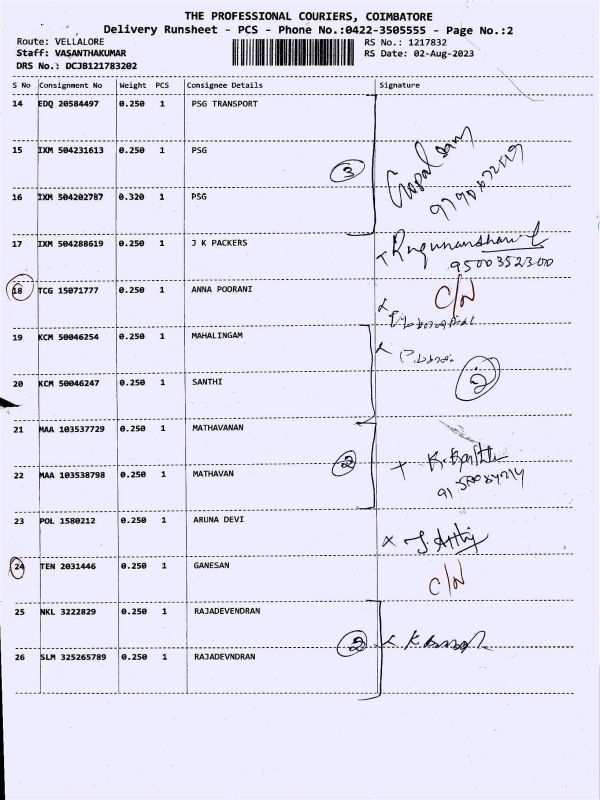 THE PROFESSIONAL COURIERS, COIMBATORE
Delivery Runsheet - PCS - Phone No.:0422-3505555 - Page No.:2
Route: VELLALORE
RS No.: 1217832
Staff: VASANTHAKUMAR
RS Date: 02-Aug-2023
DRS No.: DCJB121783202
S No Consignment No Weight PCS Consignee Details Signature
14 EDQ 20584497 0.250 1 PSG TRANSPORT
15 IXM 504231613 0.250 1 PSG
3
16 IXM 504202787 0.320 1 PSG
17 IXM 504288619 0.250 1 J K PACKERS
9500352300
18 TCG 15071777 0.250 1 ANNA POORANI C/N
19 KCM 50046254 0.250 1 MAHALINGAM
20 KCM 50046247 0.250 1 SANTHI 2
21 MAA 103537729 0.250 1 MATHAVANAN
2
22 MAA 103538798 0.250 1 MATHAVAN
23 POL 1580212 0.250 1 ARUNA DEVI
24 TEN 2031446 0.250 1 GANESAN C/N
25 NKL 3222829 0.250 1 RAJADEVENDRAN
2
26 SLM 325265789 0.250 1 RAJADEVNDRAN